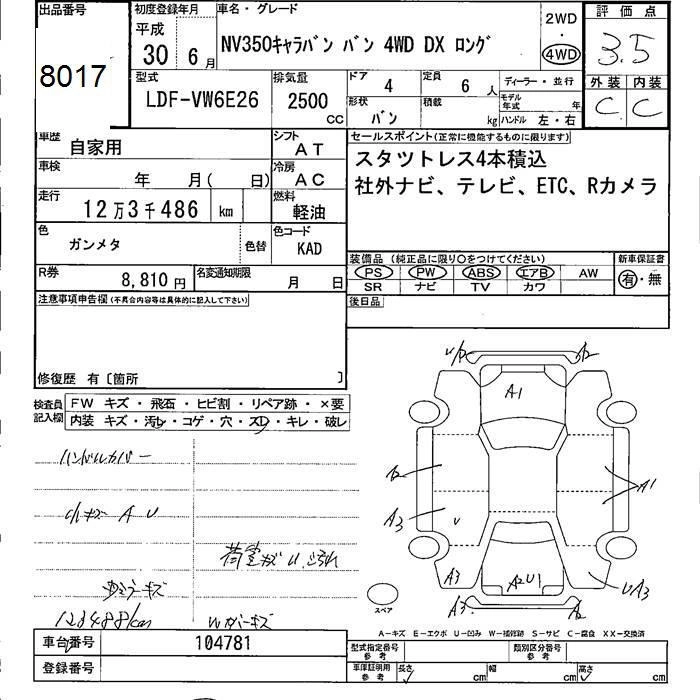 出品番号
8017
初度登録年月
平成
30年 6月
車名・グレード
NV350キャラバン バン 4WD DX ロング
2WD
・
4WD
評価点
3.5
外装 内装
C C
型式
LDF-VW6E26
排気量
2500
CC
ドア
4
定員
6人
形状
バン
積載
kg
ディーラー・並行
モデル年式 年
ハンドル 左・右
車歴
自家用
シフト
AT
車検
年 月( 日)
冷房
AC
走行
12万3千486 km
燃料
軽油
色
ガンメタ
色替
色コード
KAD
R券
8,810円
名変通知期限
月 日
セールスポイント(正常に機能するものに限ります)
スタットレス4本積込
社外ナビ、テレビ、ETC、Rカメラ
装備品(純正品に限り○をつけてください)
PS PW ABS エアB AW
SR ナビ TV カワ
新車保証書
有・無
後日品
注意事項申告欄(不具合内容等は具体的に記入して下さい)
修復歴 有〔箇所 〕
検査員記入欄
FW キズ・飛石・ヒビ割・リペア跡・×要
内装 キズ・汚レ・コゲ・穴・スレ・キレ・破レ
ハンドルカバー
小キズ A U
荷室キズ U
123488km
U/A A2
A1
A2
A3
U
A1
A3
A2U1
UA3
A3 A2
スペア
A-キズ E-エクボ U-凹み W-補修跡 S-サビ C-腐食 XX-交換済
車台番号
104781
登録番号
型式指定番号
参考
類別区分番号
参考
車庫証明用
参考
長さ cm
幅 cm
高さ cm